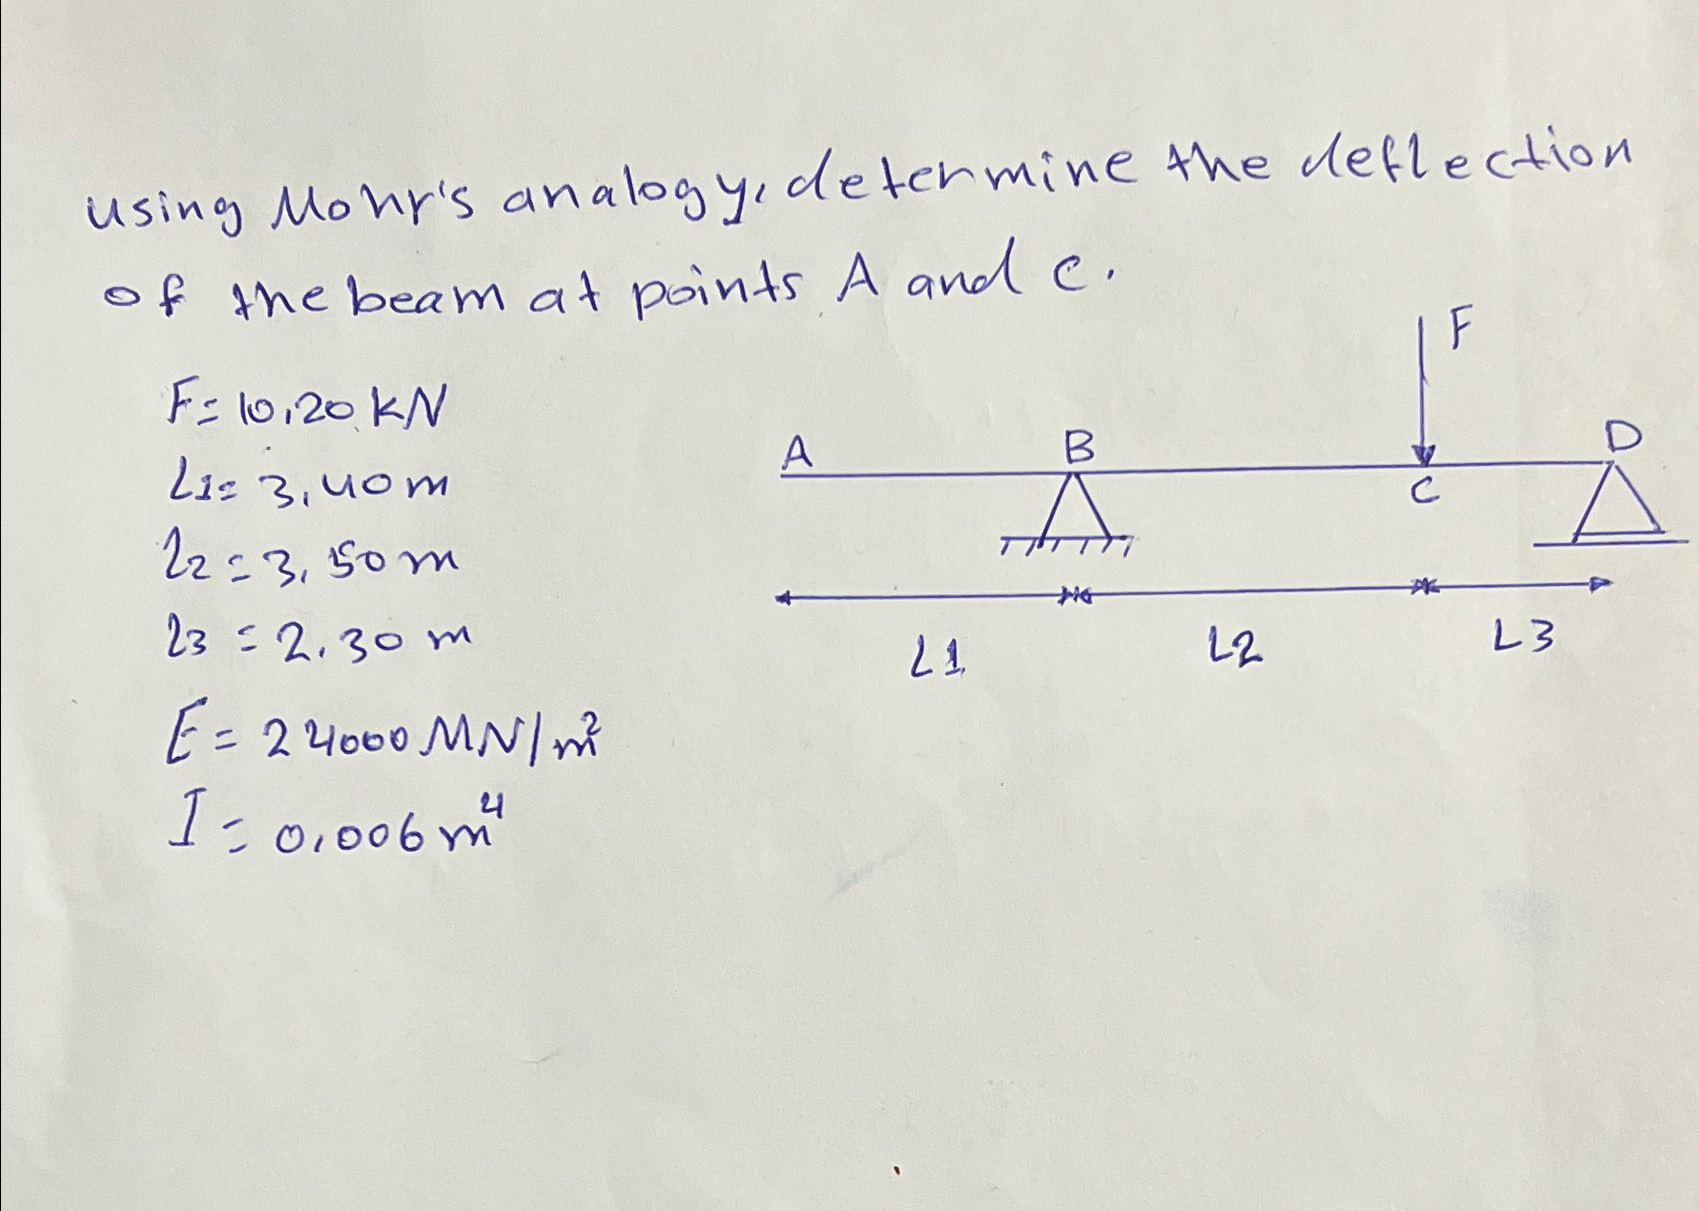 using Mohr's analogy, determine the deflection
of the beam at points A and C.
F
F = 10,20 kN
A B D
L1 = 3,40 m
C
L2 = 3,50 m
L3 = 2,30 m
L1 L2 L3
E = 24000 MN/m²
I = 0,006 m⁴